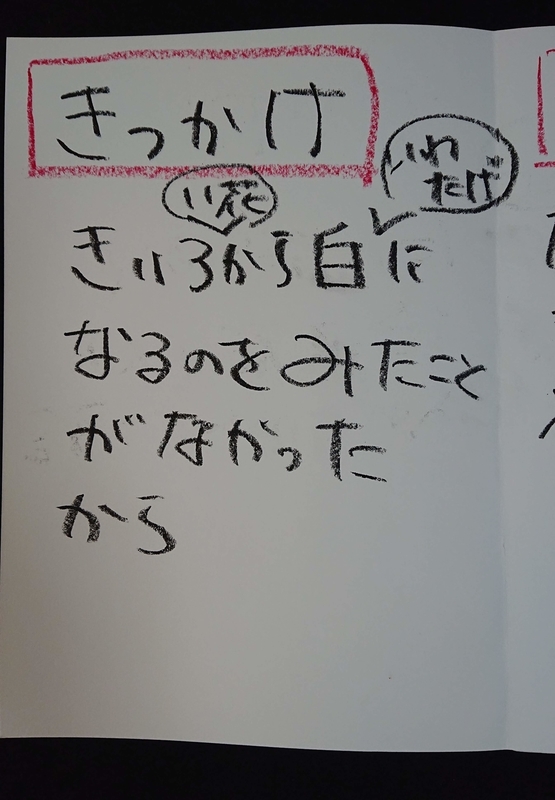 きっかけ
きいろから白に
なるのをみたこと
がなかった
から